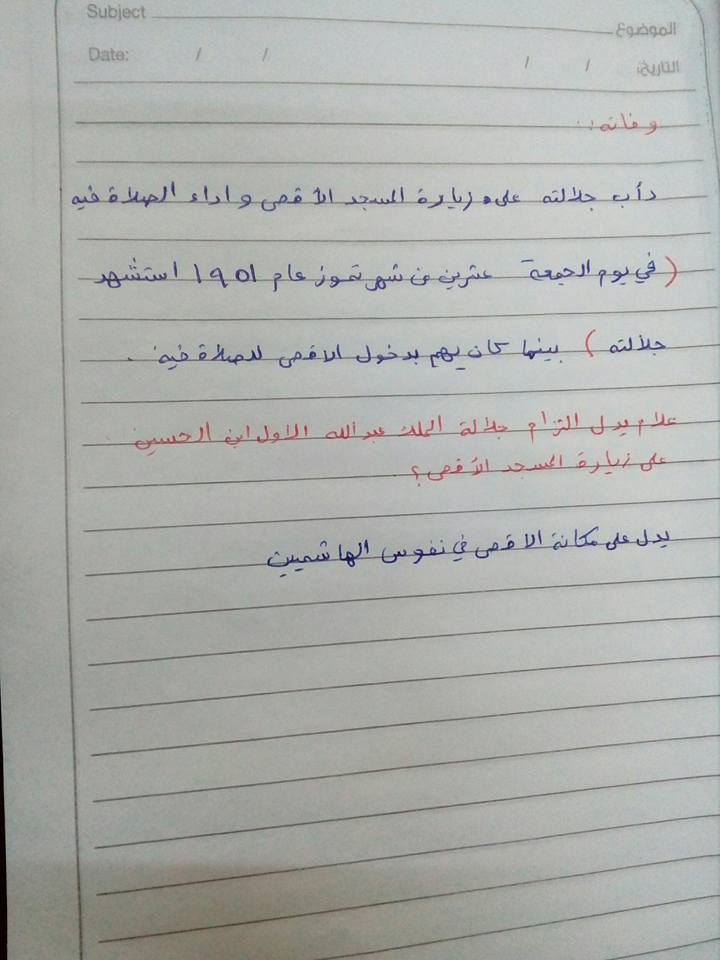 Subject الموضوع
Date: / / / / التاريخ:
وفاته:
دأب جلالته على زيارة المسجد الأقصى واداء الصلاة فيه
(في يوم الجمعة عشرين من شهر تموز عام ١٩٥١ استشهد
جلالته) بينما كان يهم بدخول الاقصى للصلاة فيه.
علام يدل التزام جلالة الملك عبدالله الاول ابن الحسين
على زيارة المسجد الأقصى؟
يدل على مكانة الاقصى في نفوس الهاشميين